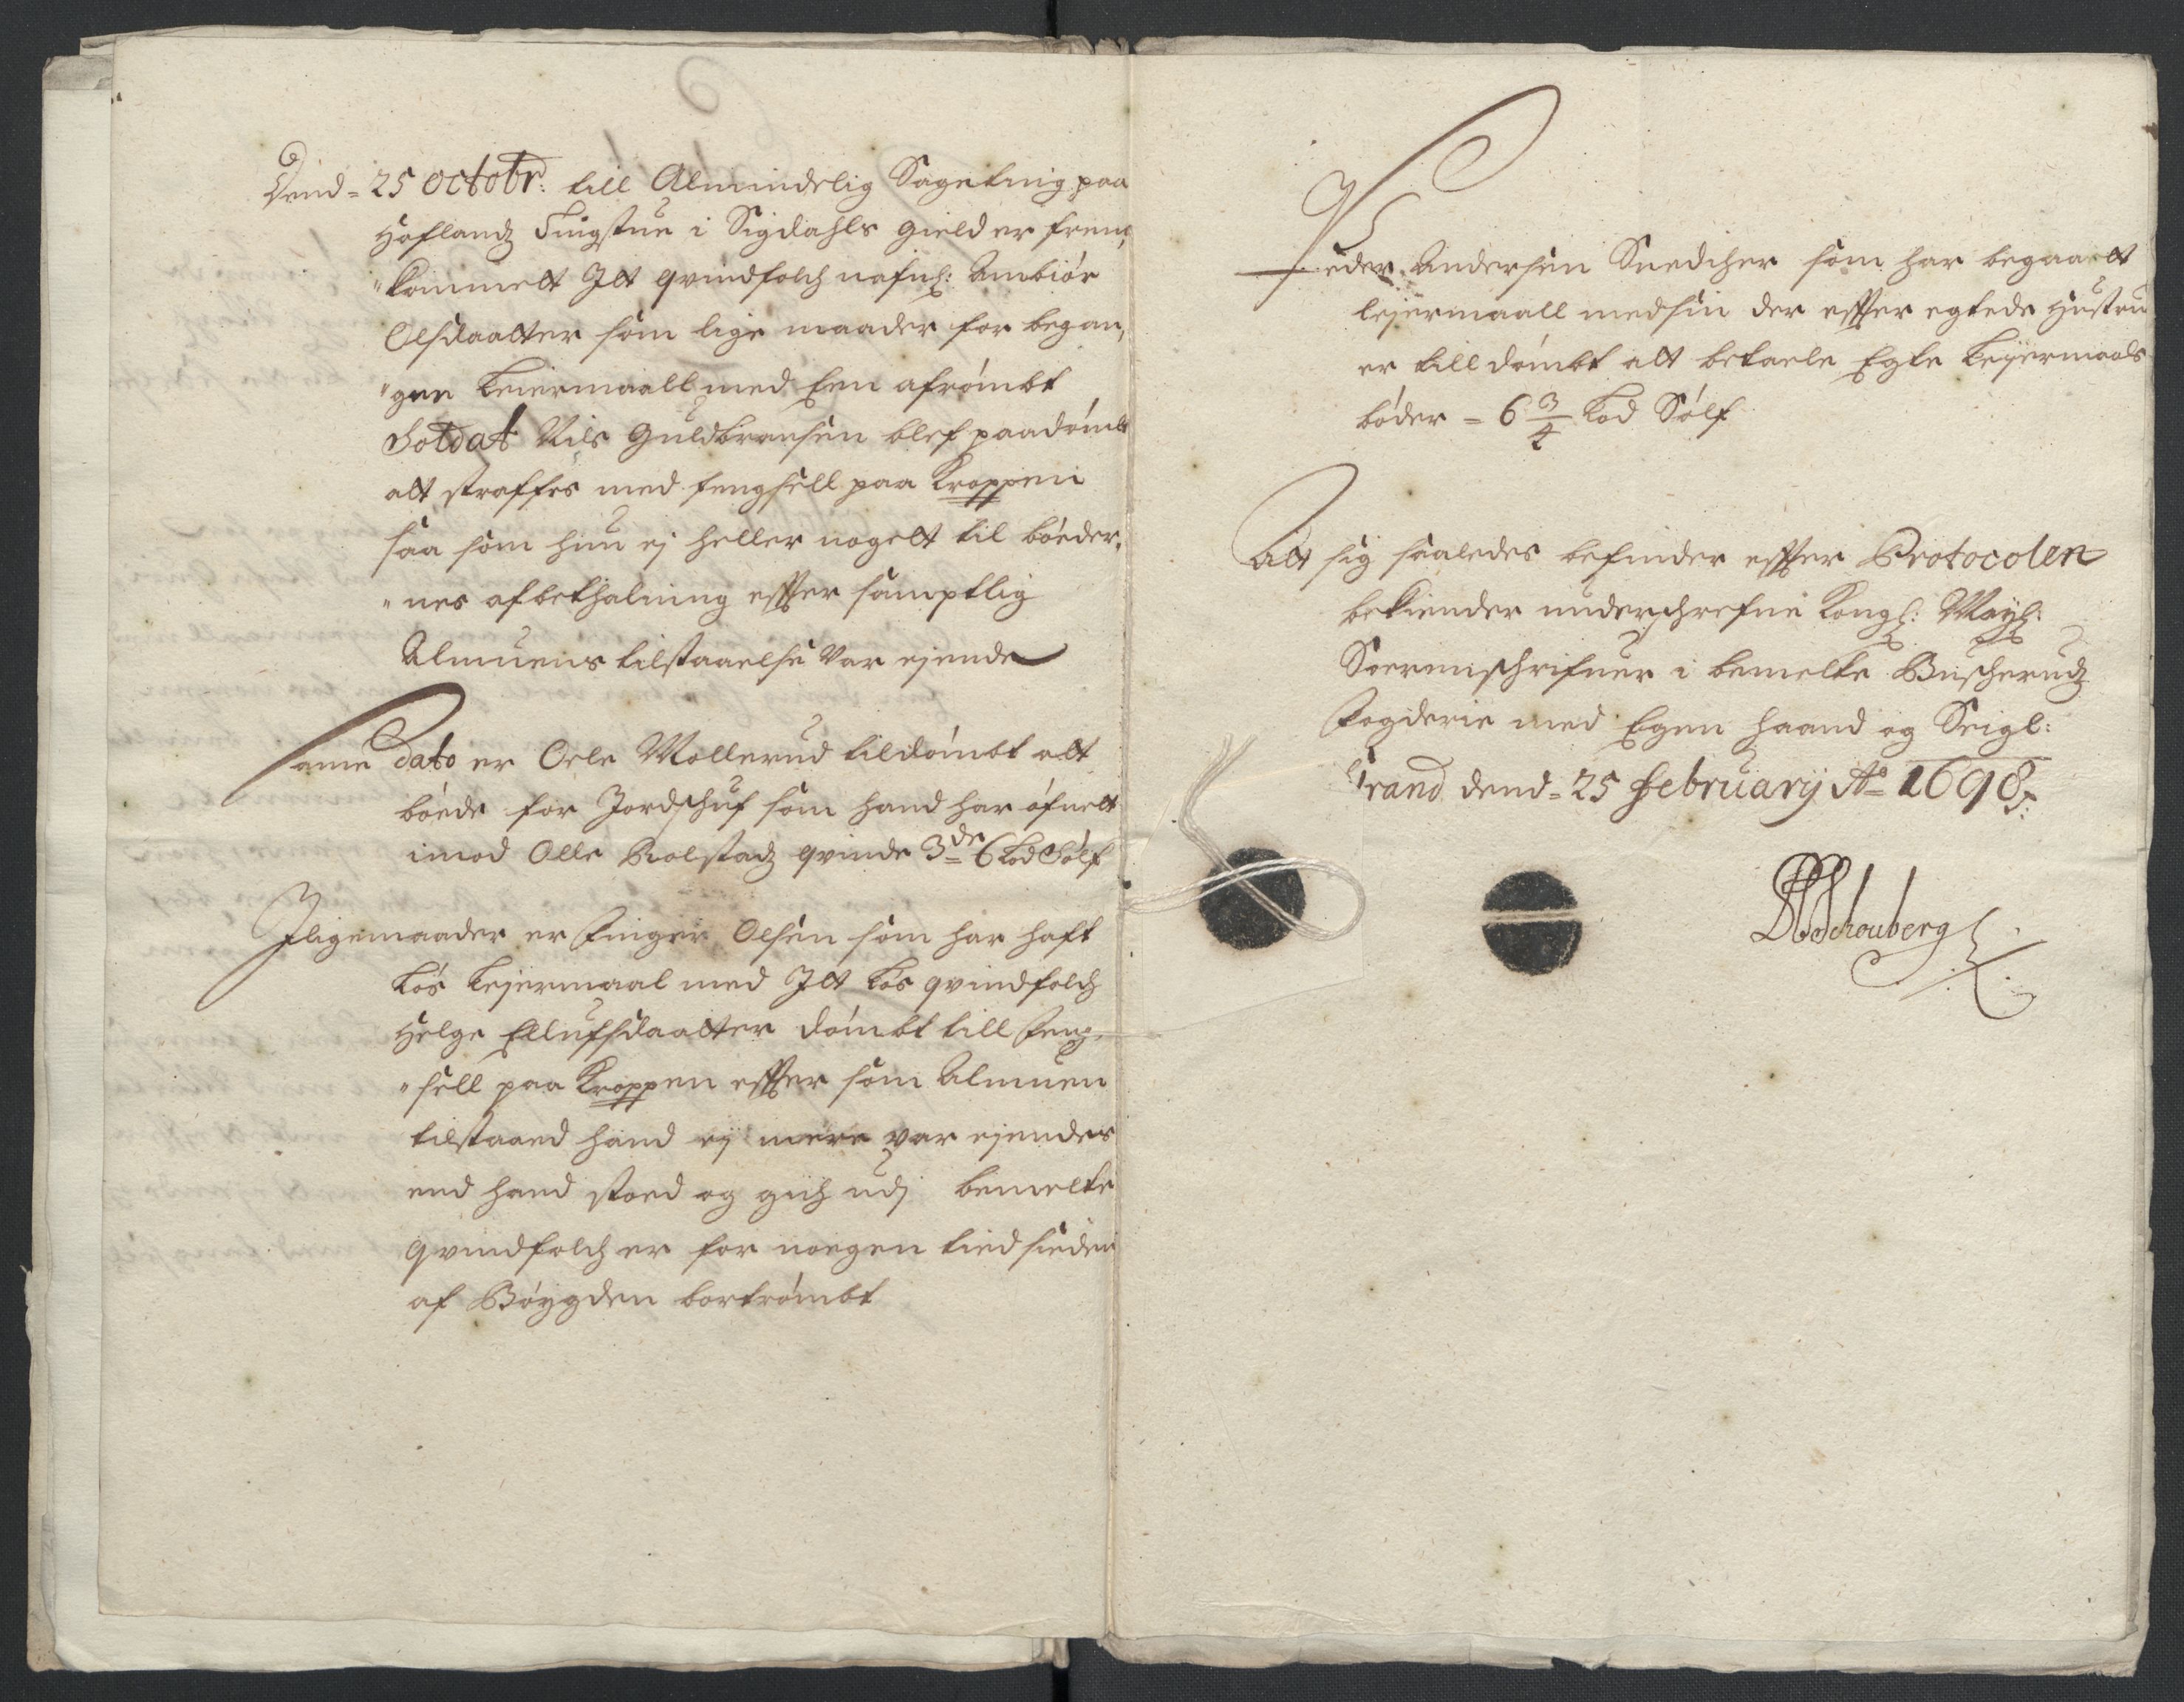 Dend = 25 octobr: till Almindelig Sageting paa
Hoflandz Tingstue i Sigdahls gield er frem,
"kommelt Itt qvindfolch nafnl: Ambiór
Olsdaatter som lige maader for began,
"gne Leiermaall med Een afrómbt
Soldat Nils Guldbransen blef paadómbt
att straffes med fengsell paa Kroppen
saa som hun ej heller nogett til bóeder,
"nes afbethalning effter samptlig
Almuens tilstaaelse var ejende
Same dato er Oele Mollerud tildómbt att
bóede for Jordschuf som hand har ófuett
imod Olle Rolstadz qvinde 3de 6 Lod Sólf
Iligemaader er Finger Olsen som har haft
Lós Lejermaal med Itt Lós qvindfolch
Helge Ellufsdaatter dómbt till Feng,
"sell paa Kroppen effter som Almuen
tilstaaed hand ej mere var ejendes
end hand stoed og gich udj bemelte
qvindfolch er for noegen tied sieden
af Bóygden bortrómbt
Peder Andersen Snedicher som har begaaett
lejermaall med sin der effter egtede Hustru
er till dómbt att betaele Egte Lejermaals
bóder = 6 3/4 Lod Sólf
Att sig saaledes befinder effter Protocolen
bekiender underschrefne Kongl: Mayt:
Soerenschrifuer i bemelte Buscheruds
Fogderie med Egen haand og Seigl:
Strand dend = 25 februarij Ao 1698:
Schouberg